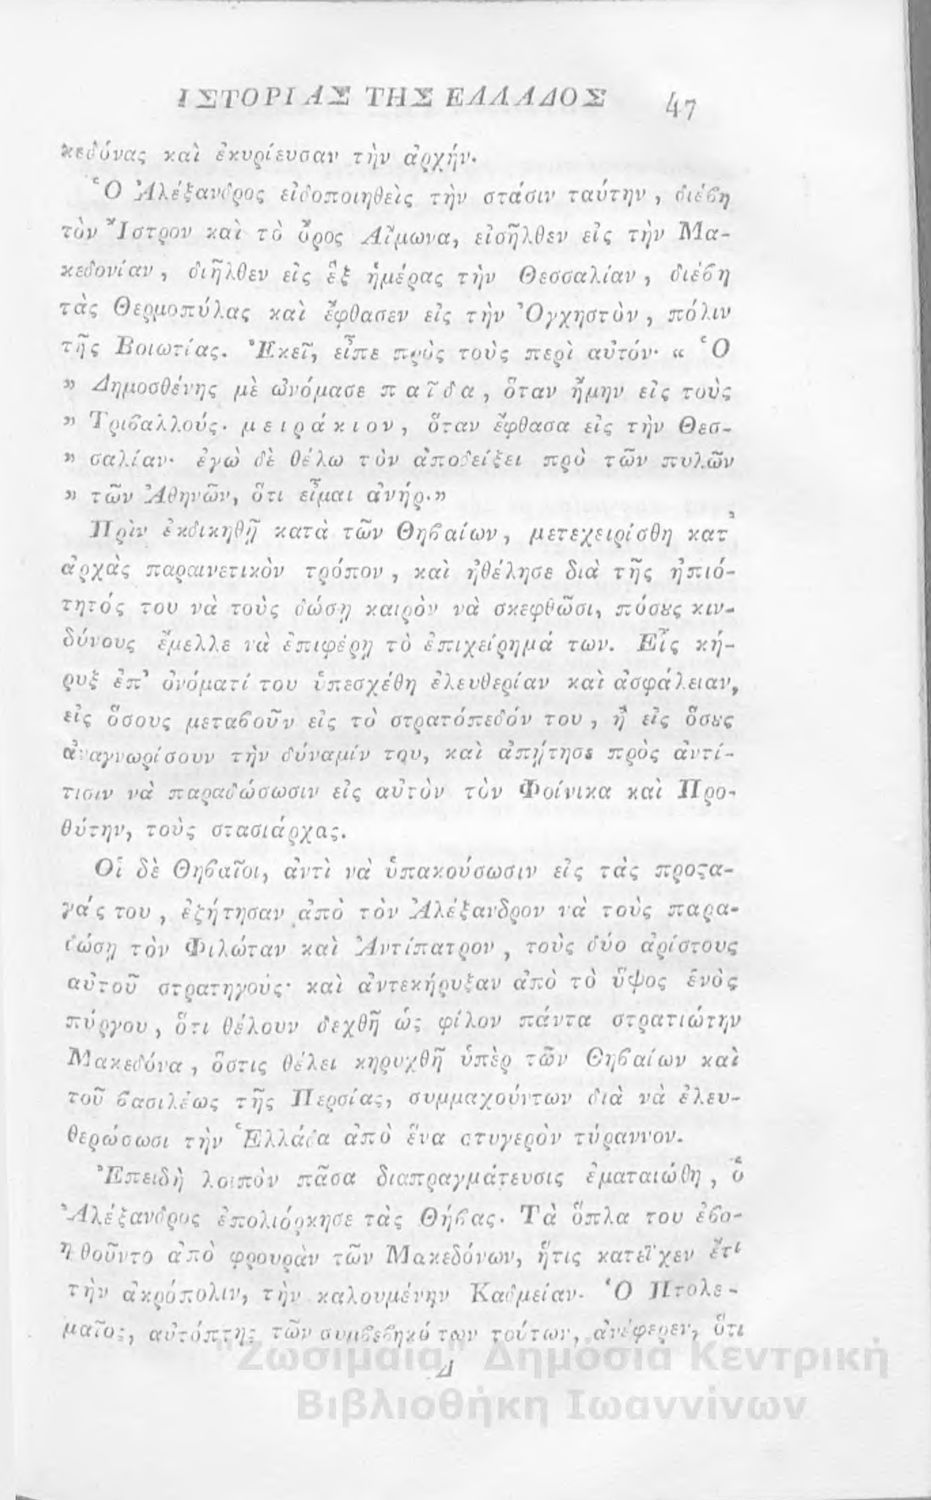 ΙΣΤΟΡΙΑΣ ΤΗΣ ΕΛΛΑΔΟΣ 47
κεδόνας καὶ ἐκυρίευσαν τὴν ἀρχήν.
Ὁ Ἀλέξανδρος εἰδοποιηθεὶς τὴν στάσιν ταύτην, διέβη
τὸν Ἴστρον καὶ τὸ ὄρος Αἵμωνα, εἰσῆλθεν εἰς τὴν Μα-
κεδονίαν, διῆλθεν εἰς ἓξ ἡμέρας τὴν Θεσσαλίαν, διέβη
τὰς Θερμοπύλας καὶ ἔφθασεν εἰς τὴν Ὀγχηστὸν, πόλιν
τῆς Βοιωτίας. Ἐκεῖ, εἶπε πρὸς τοὺς περὶ αὐτόν· « Ὁ
» Δημοσθένης μὲ ὠνόμασε παῖδα, ὅταν ἤμην εἰς τοὺς
» Τριβαλλούς· μειράκιον, ὅταν ἔφθασα εἰς τὴν Θεσ-
» σαλίαν· ἐγὼ δὲ θέλω τὸν ἀποδείξει πρὸ τῶν πυλῶν
» τῶν Ἀθηνῶν, ὅτι εἶμαι ἀνήρ.»
Πρὶν ἐκδικηθῇ κατὰ τῶν Θηβαίων, μετεχειρίσθη κατ᾽
ἀρχὰς παραινετικὸν τρόπον, καὶ ἠθέλησε διὰ τῆς ἠπιό-
τητός του νὰ τοὺς δώσῃ καιρὸν νὰ σκεφθῶσι, πόσȣς κιν-
δύνους ἔμελλε νὰ ἐπιφέρῃ τὸ ἐπιχείρημά των. Εἷς κή-
ρυξ ἐπ᾽ ὀνόματί του ὑπεσχέθη ἐλευθερίαν καὶ ἀσφάλειαν,
εἰς ὅσους μεταβοῦν εἰς τὸ στρατόπεδόν του, ἢ εἰς ὅσȣς
ἀναγνωρίσουν τὴν δύναμίν του, καὶ ἀπῄτησε πρὸς ἀντί-
τισιν νὰ παραδώσωσιν εἰς αὐτὸν τὸν Φοίνικα καὶ Προ-
θύτην, τοὺς στασιάρχας.
Οἱ δὲ Θηβαῖοι, ἀντὶ νὰ ὑπακούσωσιν εἰς τὰς προϛα-
γάς του, ἐζήτησαν ἀπὸ τὸν Ἀλέξανδρον νὰ τοὺς παρα-
δώσῃ τὸν Φιλώταν καὶ Ἀντίπατρον, τοὺς δύο ἀρίστους
αὐτοῦ στρατηγούς· καὶ ἀντεκήρυξαν ἀπὸ τὸ ὕψος ἑνὸς
πύργου, ὅτι θέλουν δεχθῆ ὡς φίλον πάντα στρατιώτην
Μακεδόνα, ὅστις θέλει κηρυχθῆ ὑπὲρ τῶν Θηβαίων καὶ
τοῦ βασιλέως τῆς Περσίας, συμμαχούντων διὰ νὰ ἐλευ-
θερώσωσι τὴν Ἑλλάδα ἀπὸ ἕνα στυγερὸν τύραννον.
Ἐπειδὴ λοιπὸν πᾶσα διαπραγμάτευσις ἐματαιώθη, ὁ
Ἀλέξανδρος ἐπολιόρκησε τὰς Θήβας. Τὰ ὅπλα του ἐβο-
ηθοῦντο ἀπὸ φρουρὰν τῶν Μακεδόνων, ἥτις κατεῖχεν ἔτι
τὴν ἀκρόπολιν, τὴν καλουμένην Καδμείαν. Ὁ Πτολε-
μαῖος, αὐτόπτης τῶν συμβεβηκότων τούτων, ἀνέφερεν, ὅτι
Δ
"Ζωσιμαία" Δημόσια Κεντρική
Βιβλιοθήκη Ιωαννίνων